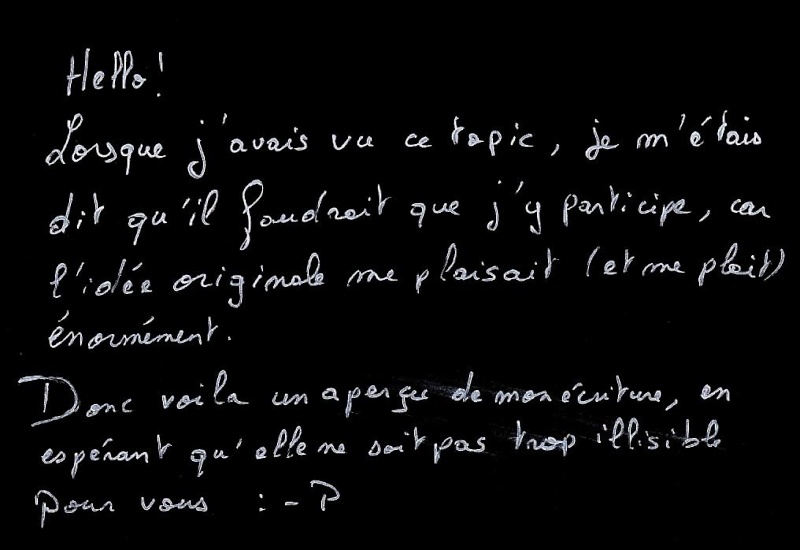 Hello!
Lorsque j'avais vu ce topic, je m'étais
dit qu'il faudrait que j'y participe, car
l'idée originale me plaisait (et me plait)
énormément.
Donc voila un aperçu de mon écriture, en
espérant qu'elle ne soit pas trop illisible
pour vous :-P